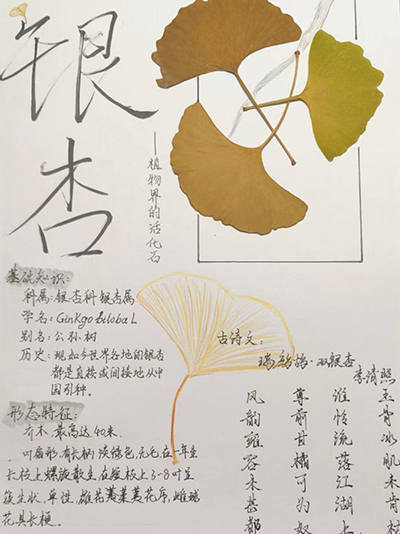 银杏
——植物界的活化石
基础知识:
科属:银杏科 银杏属
学名:Ginkgo biloba L
别名:公孙树
历史:现如今世界各地的银杏
都是直接或间接地从中
国引种。
形态特征:
乔木,最高达40米.
叶扇形,有长柄,淡绿色,无毛,在一年生
长枝上螺旋散生,在短枝上3-8叶呈
簇生状,单性,雄花葇荑花序,雌球
花具长梗.
古诗文:
瑞鹧鸪·双银杏
李清照
风韵雍容未甚都
尊前甘橘可为奴
谁怜流落江湖上
玉骨冰肌未肯枯